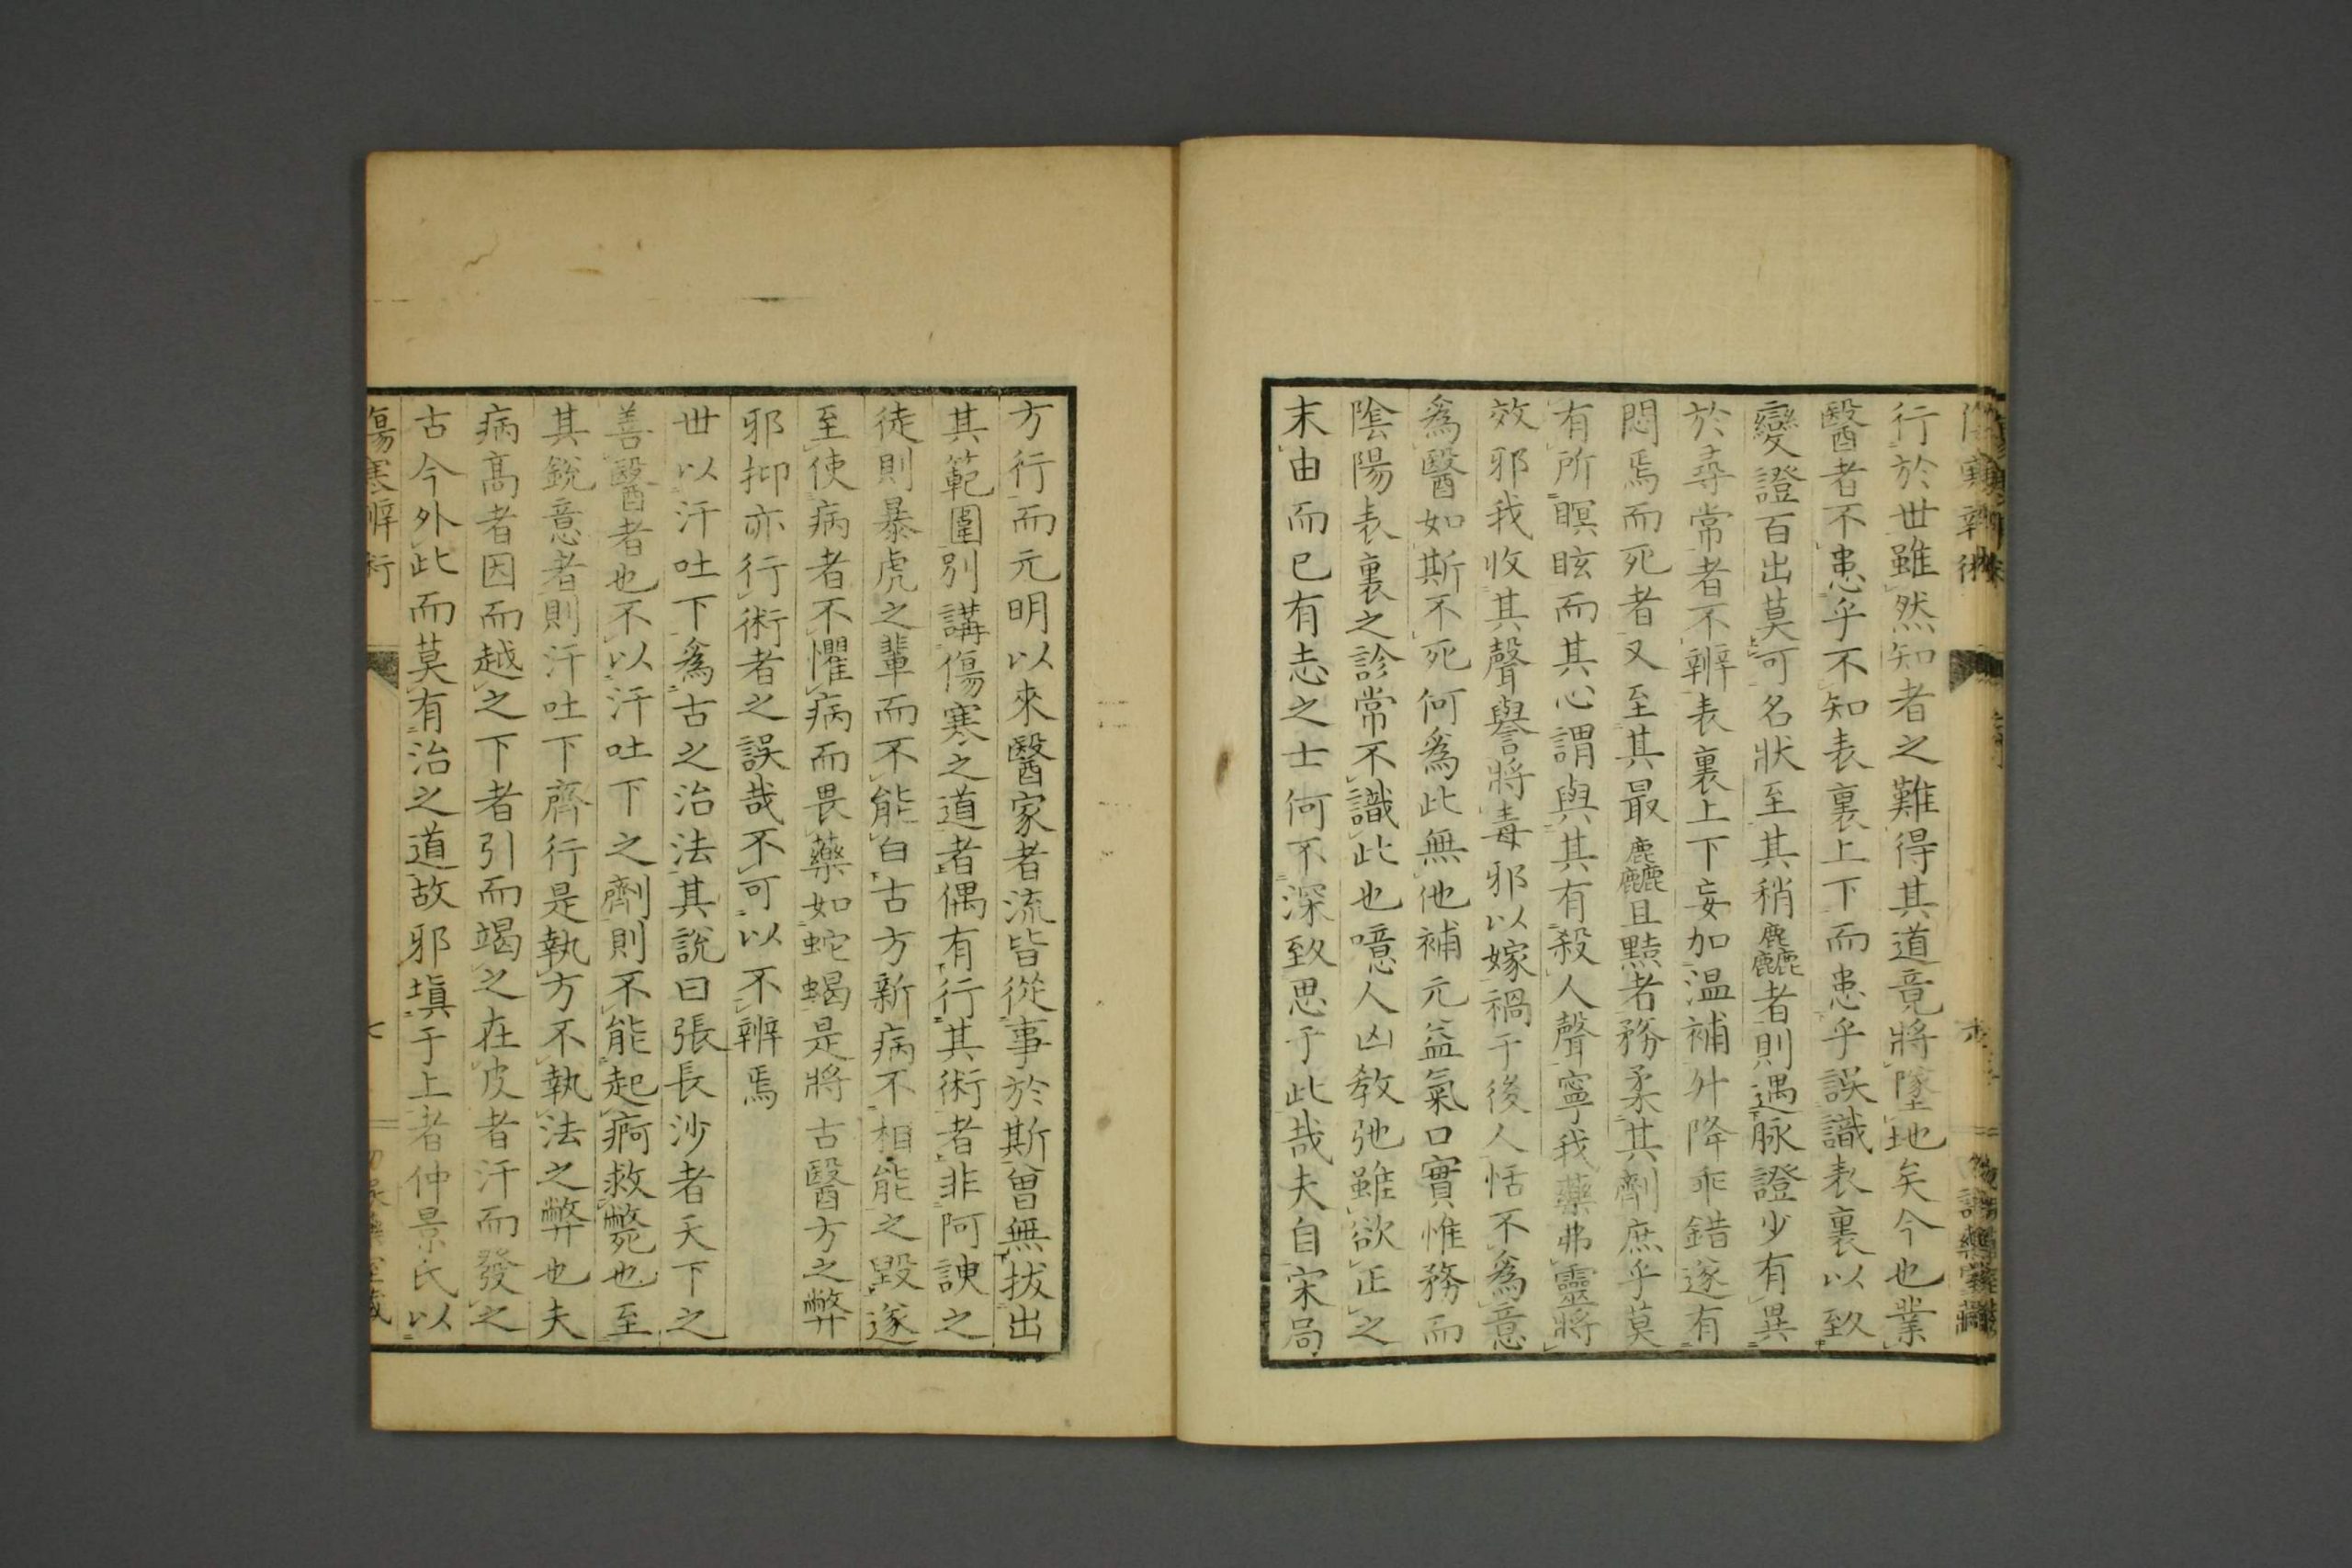 行於世雖然知者之難得其道竟將墜地矣今也業
醫者不患乎不知表裏上下而患乎誤識表裏以致
變證百出莫可名狀至其稍麤者則遇脉證少有異
於尋常者不辨表裏上下妄加温補升降乖錯遂有
悶焉而死者又至其最麤且黠者務柔其劑庶乎莫
有所瞑眩而其心謂與其有殺人聲寧我藥弗靈將
效邪我收其聲譽將毒邪以嫁禍于後人恬不爲意
爲醫如斯不死何爲此無他補元益氣口實惟務而
陰陽表裏之診常不識此也噫人凶教弛雖欲正之
末由而已有志之士何不深致思于此哉夫自宋局
方行而元明以來醫家者流皆從事於斯曾無拔出
其範圍別講傷寒之道者偶有行其術者非阿諛之
徒則暴虎之輩而不能白古方新病不相能之毀遂
至使病者不懼病而畏藥如蛇蝎是將古醫方之弊
邪抑亦行術者之誤哉不可以不辨焉
世以汗吐下爲古之治法其說曰張長沙者天下之
善醫者也不以汗吐下之劑則不能起痾救斃也至
其銳意者則汗吐下齊行是執方不執法之弊也夫
病高者因而越之下者引而竭之在皮者汗而發之
古今外此而莫有治之道故邪塡于上者仲景氏以
傷寒辨術